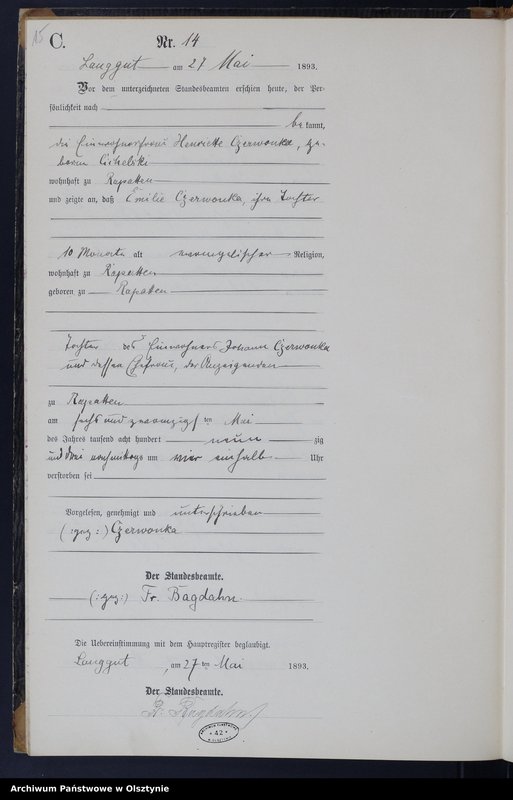 15
C.
Nr. 14
Langgut am 27 Mai 1893.
Vor dem unterzeichneten Standesbeamten erschien heute, der Per-
sönlichkeit nach
be kannt,
die Einwohnerfrau Henriette Czerwonka, ge-
borene
wohnhaft zu Rapatten
und zeigte an, daß Emilie Czerwonka, ihre Tochter
10 Monate alt evangelischer Religion,
wohnhaft zu Rapatten
geboren zu Rapatten
Tochter des Einwohners Johann Czerwonka
und dessen Ehefrau, der Anzeigenden
zu Rapatten
am sechs und zwanzigsten Mai
des Jahres tausend acht hundert neun zig
und drei nachmittags um vier einhalb Uhr
verstorben sei
Vorgelesen, genehmigt und unterschrieben
(:gez:) Czerwonka
Der Standesbeamte.
(:gez:) Fr. Bagdahn.
Die Uebereinstimmung mit dem Hauptregister beglaubigt.
Langgut, am 27ten Mai 1893.
Der Standesbeamte.
Fr. Bagdahn
42
Archiwum Państwowe w Olsztynie